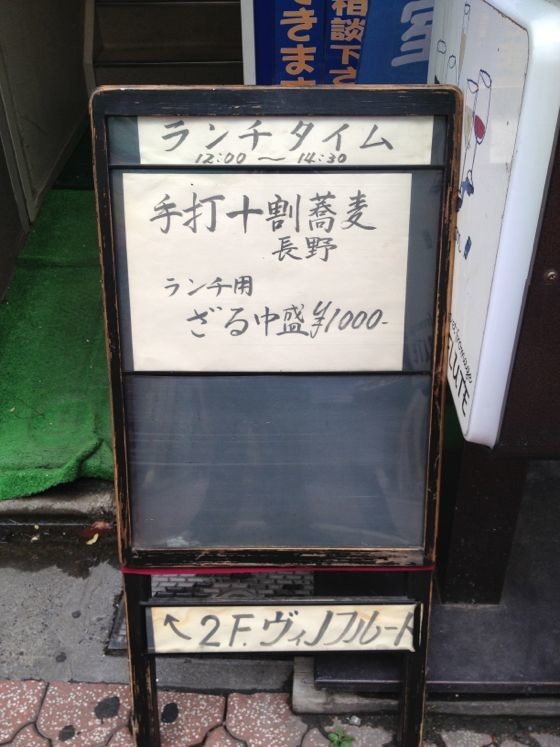 相談下さ
できます
室
ランチタイム
12:00 〜 14:30
手打十割蕎麦
長野
ランチ用
ざる中盛¥1000-
↖2F.ヴィノフルート
LUTE